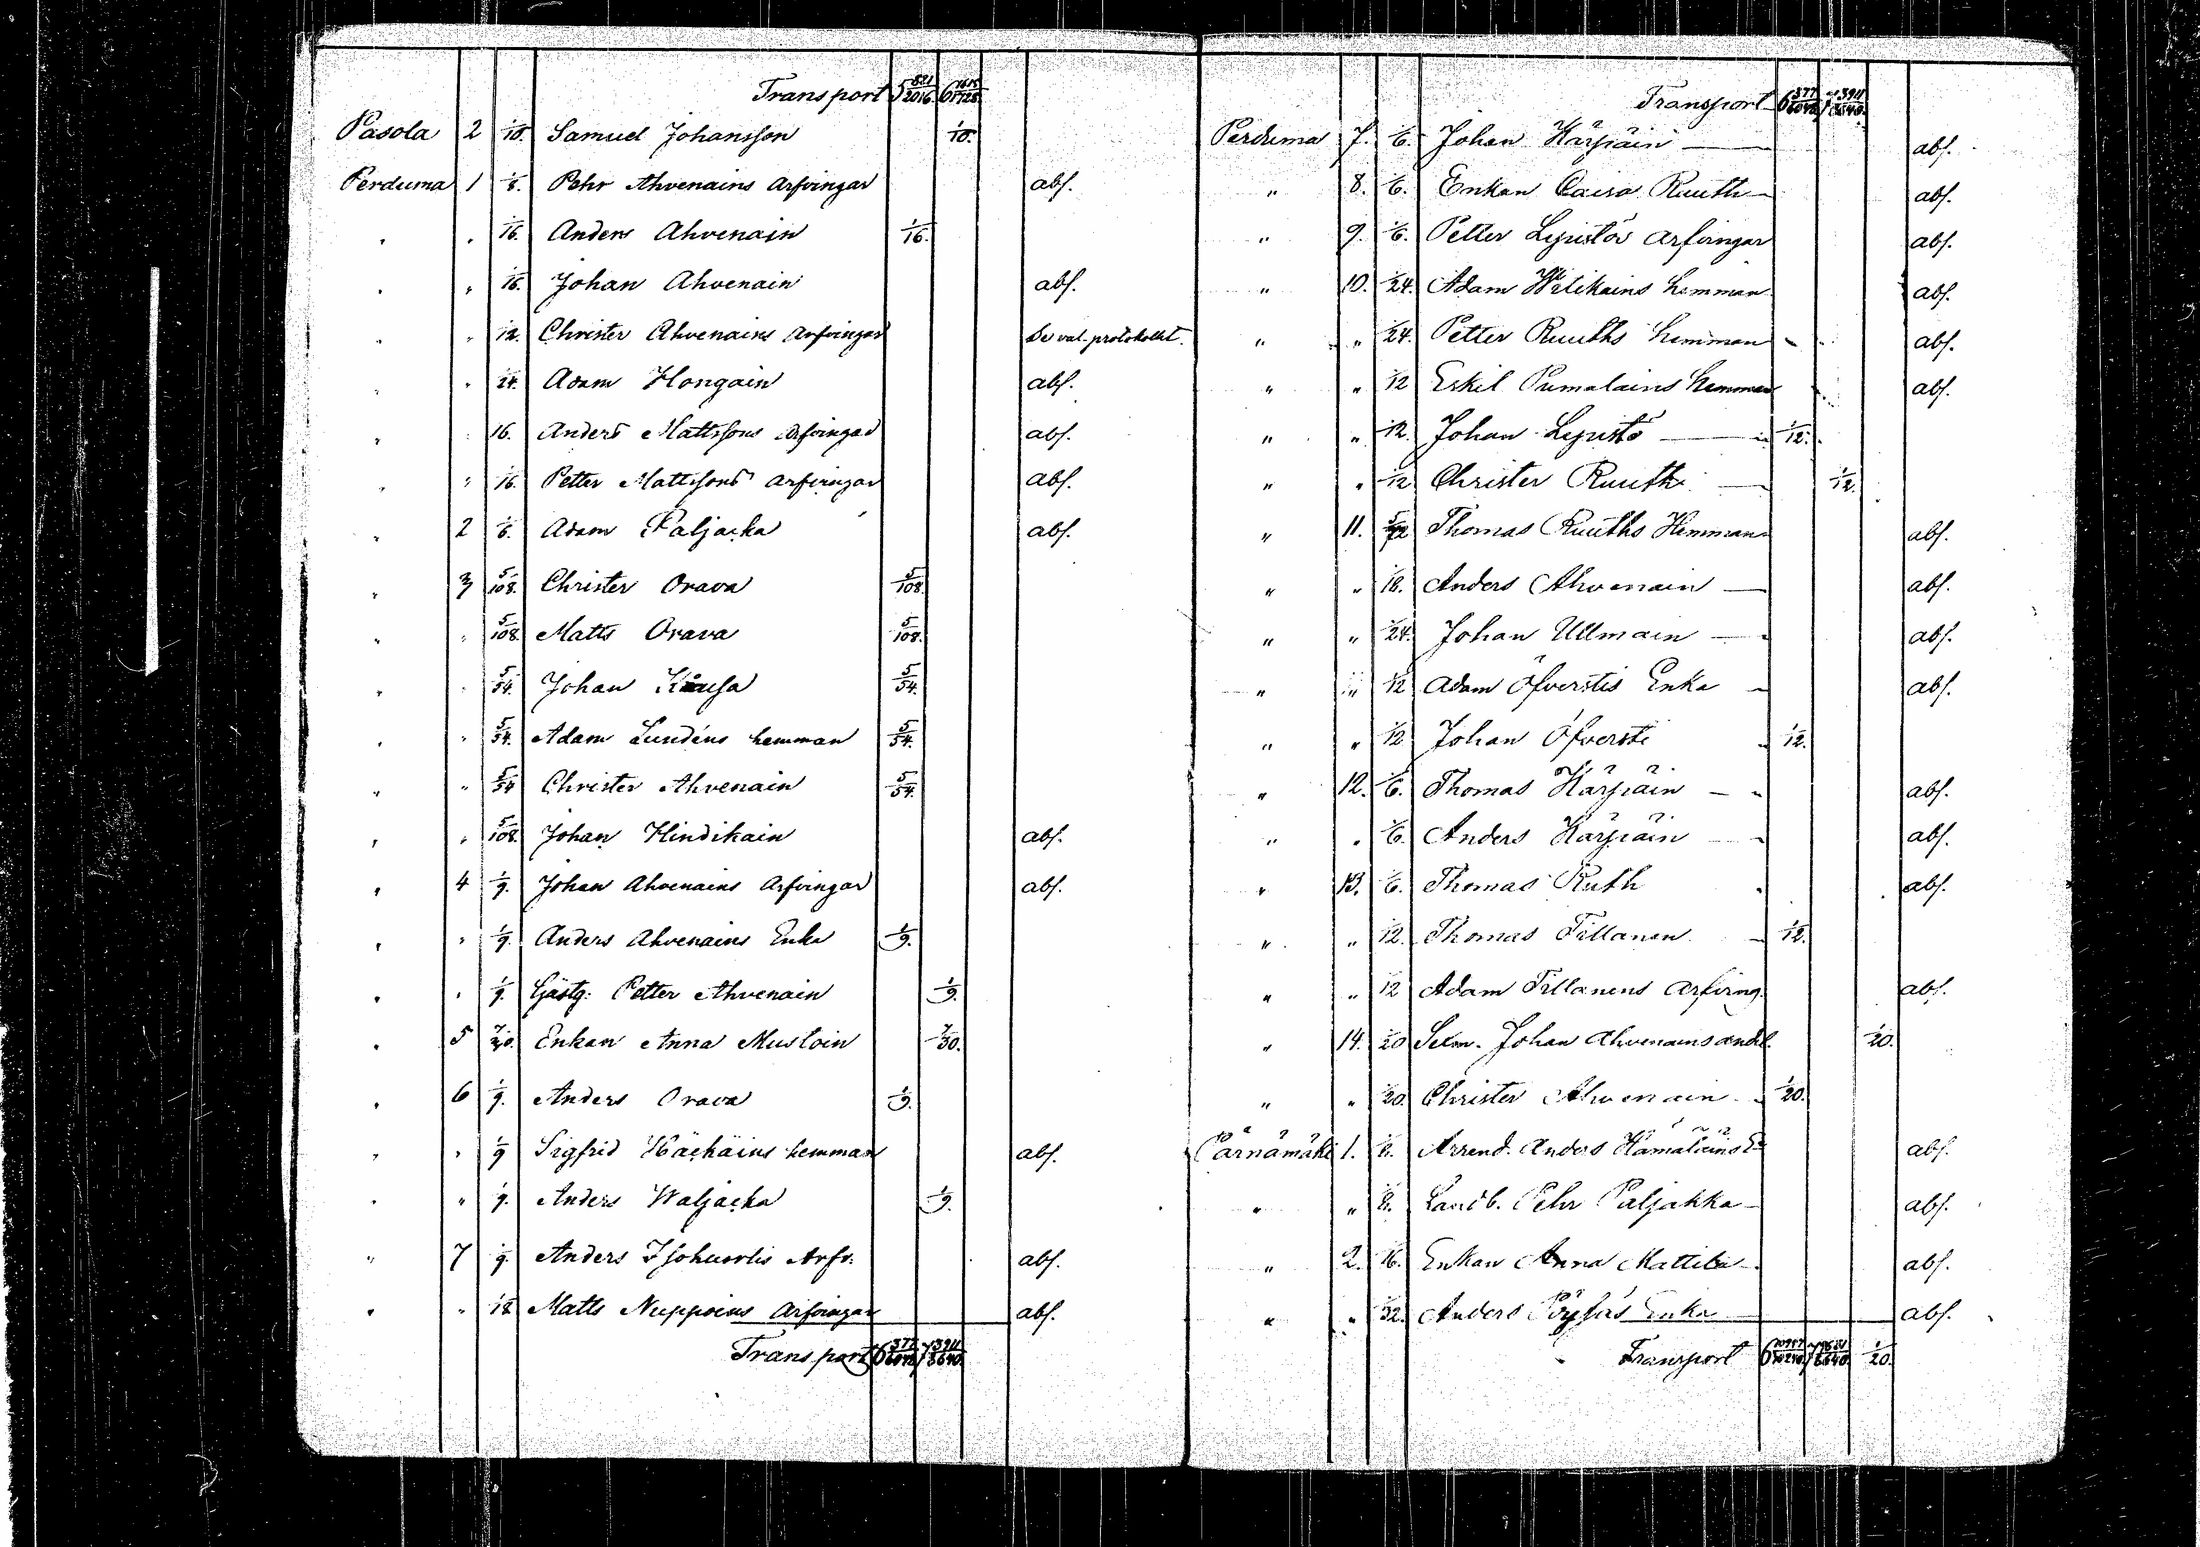 Transport 5 821/2016. 6 1615/1728
Pasola 2 1/10. Samuel Johansson 1/10.
Perduma 1 1/8. Pehr Ahvenains Arfvingar abs.
" " 1/16. Anders Ahvenain 1/16.
" " 1/16. Johan Ahvenain abs.
" " 1/12. Christer Ahvenains Arfvingar Se val. protokollet.
" " 1/24. Adam Hongain abs.
" " 16. Anders Mattssons Arfvingar abs.
" " 1/16. Petter Mattssons Arfvingar abs.
" 2 1/6. Adam Paljacka abs.
" 3 5/108. Christer Orava 5/108.
" " 5/108. Matts Orava 5/108.
" " 5/54. Johan 5/54.
" " 5/54. Adam Lundéns hemman 5/54.
" " 5/54 Christer Ahvenain 5/54.
" " 5/108. Johan Hindikain abs.
" 4 1/9. Johan Ahvenains Arfvingar abs.
" " 1/9. Anders Ahvenains Enka 1/9.
" " 1/9. Gästg: Petter Ahvenain 1/9.
" 5 7/30. Enkan Anna Mustoin 7/30.
" 6 1/9. Anders Orava 1/9.
" " 1/9 Sigfrid Häckäins hemman abs.
" " 1/9. Anders Waljacka 1/9.
" 7 1/9. Anders Arfv: abs.
" " 1/18 Matts Nuppoins Arfvingar abs.
Transport 6 377/6048 7 3911/8640.
Transport 6 377/6048 7 3911/8640.
Perduma 7. 1/6. Johan Kärpäin abs.
" 8. 1/6. Enkan Caisa Ruuth abs.
" 9. 1/6. Petter Lepistös Arfvingar abs.
" 10. 1/24. Adam hemman abs.
" " 1/24. Petter Ruuths hemman abs.
" " 1/12 Eskil Pumalains hemman abs.
" " 1/12. Johan Lepistö 1/12.
" " 1/12 Christer Ruuth 1/12.
" 11. Thomas Ruuths Hemman abs.
" " 1/16. Anders Ahvenain abs.
" " 1/24. Johan Ullmain abs.
" " 1/12 Adam Öfverstis Enka abs.
" " 1/12 Johan Öfversti 1/12.
" 12. 1/6. Thomas Kärpäin abs.
" " 1/6. Anders Kärpäin abs.
" 13. 1/6. Thomas Ruth abs.
" " 1/12. Thomas Tillanen 1/12.
" " 1/12 Adam Tillanens Arfving. abs.
" 14. 1/20 Johan Ahvenains andel. 1/20.
" " 1/20. Christer Ahvenain 1/20.
Pärnämäki 1. 1/8. Arrend. Anders Hämäläins abs.
" " 1/8. Landb. Pehr Paljakka abs.
" 2. 1/16. Enkan Anna Mattila abs.
" " 1/32. Anders Pöysäs Enka abs.
Transport 6 7 1/20.